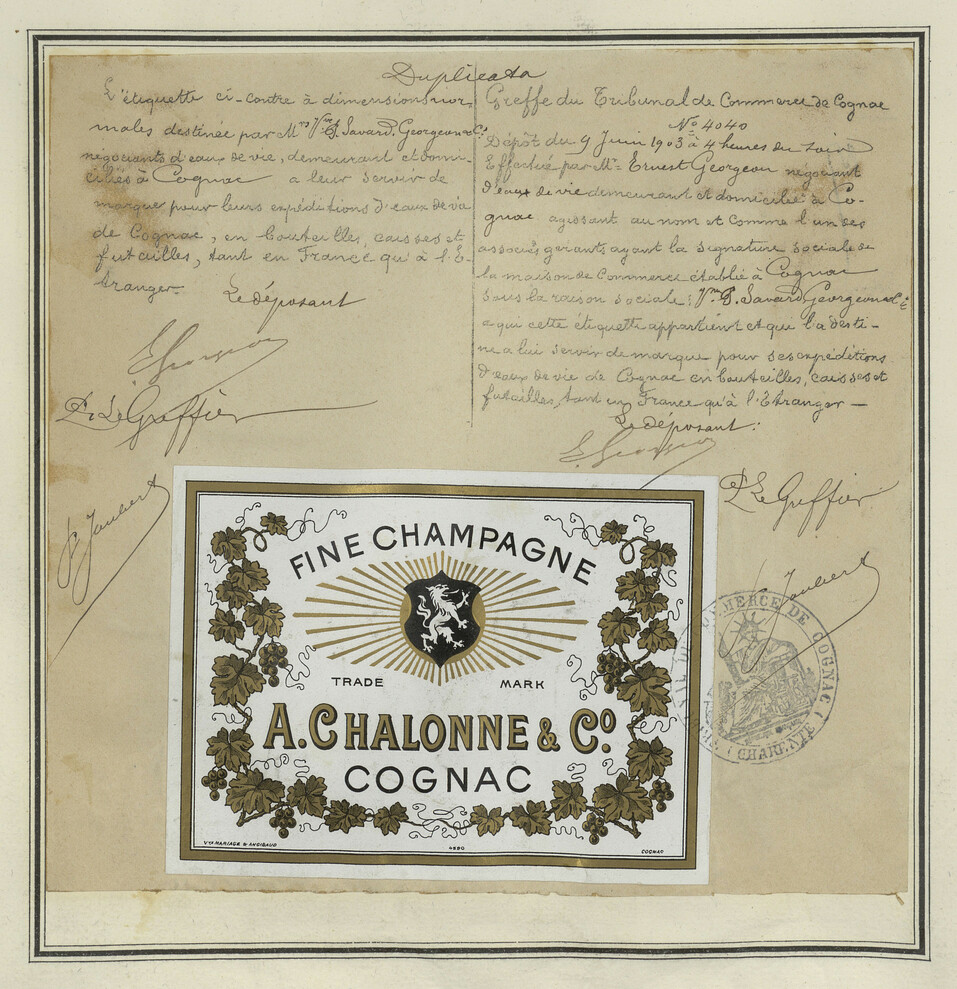 Duplicata
L'étiquette ci-contre à dimensions nor-
males destinée par Mrs Vve P. Savard, Georgeon & Cie
négociants d'eaux de vie, demeurant et domi-
ciliés à Cognac a leur servir de
marque pour leurs expéditions d'eaux de vie
de Cognac, en bouteilles, caisses et
futailles, tant en France qu'à l'É-
tranger.
Le déposant
E. Georgeon
Pr Le Greffier
P. Joubert
Greffe du Tribunal de Commerce de Cognac
No 4040
Dépôt du 9 Juin 1903 à 4 heures du soir
Effectué par Mr Ernest Georgeon négociant
d'eaux de vie demeurant et domicilié à Co-
gnac agissant au nom et comme l'un des
associés gérants ayant la signature sociale de
la maison de Commerce établie à Cognac
sous la raison sociale: Vve P. Savard Georgeon & Cie
a qui cette étiquette appartient et qui l'a desti-
née a lui servir de marque pour ses expéditions
d'eaux de vie de Cognac en bouteilles, caisses et
futailles, tant en France qu'à l'Étranger —
Le déposant:
E. Georgeon
Pr Le Greffier
P. Joubert
COMMERCE DE COGNAC
(CHARENTE)
FINE CHAMPAGNE
TRADE MARK
A. CHALONNE & Co
COGNAC
Vve MARIAGE & ANGIBAUD
4890
COGNAC